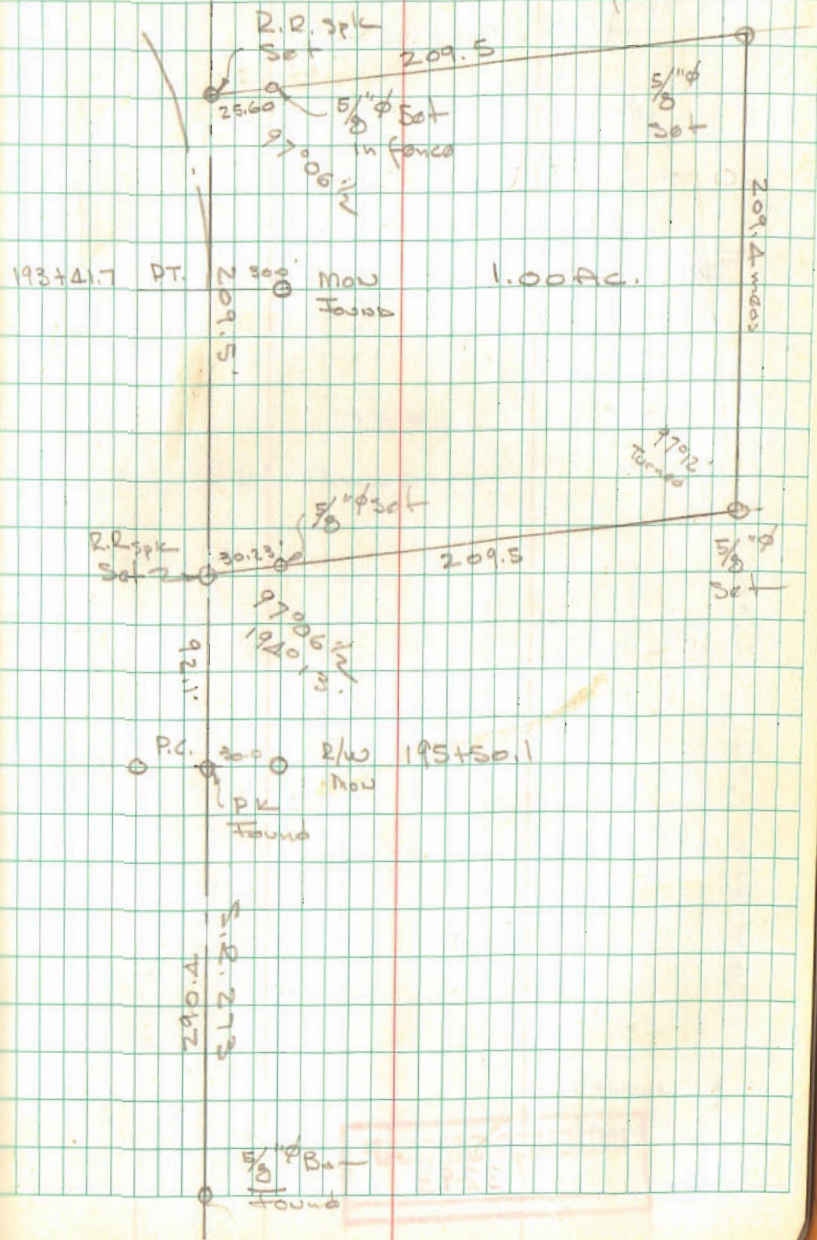 R.R. spk
Set
209.5
25.60
5/8"φ Set
in fence
5/8"φ
Set
97°06'½
209.4 meas
193+41.7 P.T.
209.5'
30.0'
Mon
Found
1.00 Ac.
97°12'
Turned
5/8"φ Set
R.R. spk
Set
30.23'
209.5
5/8"φ
Set
97°06'½
194°13'
P.C.
30.0
R/W
Mon
195+50.1
PK
Found
290.4
S.R. 273
5/8"φ Bar
Found